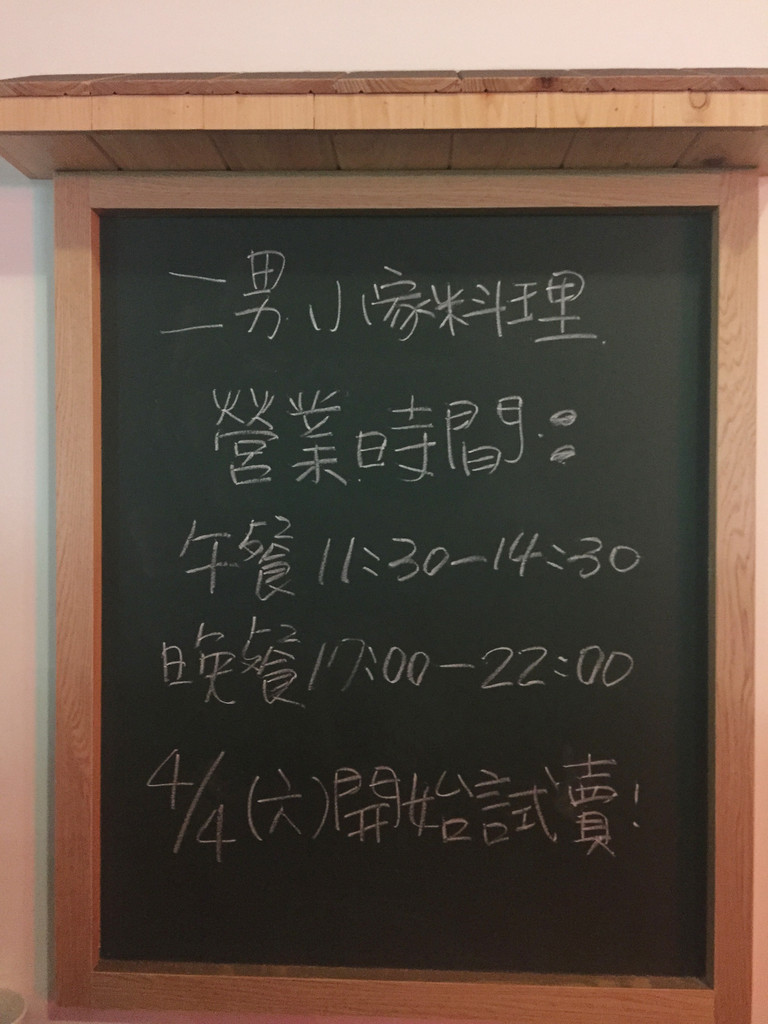 二男小家料理
營業時間:
午餐11:30-14:30
晚餐17:00-22:00
4/4(六)開始試賣!